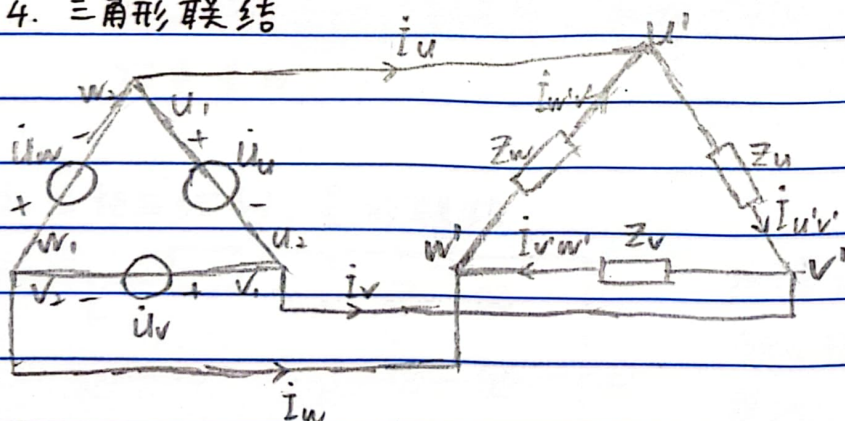 4. 三角形联结
İu
u'
w₂
u₁
İw'u'
u̇w
-
+
u̇u
Zw
Zu
+
-
İu'v'
w₁
u₂
w'
İv'w'
Zv
v'
v₂
-
+
v₁
İv
u̇v
İw